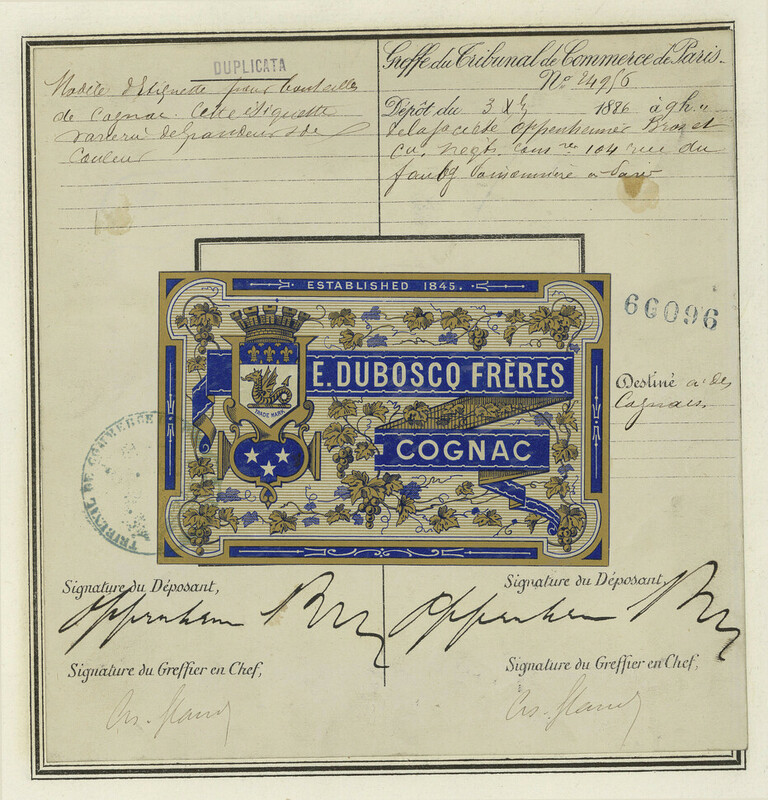 DUPLICATA
Modèle d'Etiquette pour bouteilles
de Cognac. Cette étiquette
variera de grandeur & de
Couleur
Greffe du Tribunal de Commerce de Paris.
No 24956
Dépôt du 3 Xbre 1886 à 9h
de la société Oppenheimer Bros et
Co. Negts. 104 rue du
faubg Poissonnière à Paris
ESTABLISHED 1845.
60096
E. DUBOSCQ FRÈRES
TRADE MARK
COGNAC
Destiné à des
Cognacs
TRIBUNAL DE COMMERCE
Signature du Déposant,
Oppenheim Bros
Signature du Déposant,
Oppenheim Bros
Signature du Greffier en Chef,
Signature du Greffier en Chef,